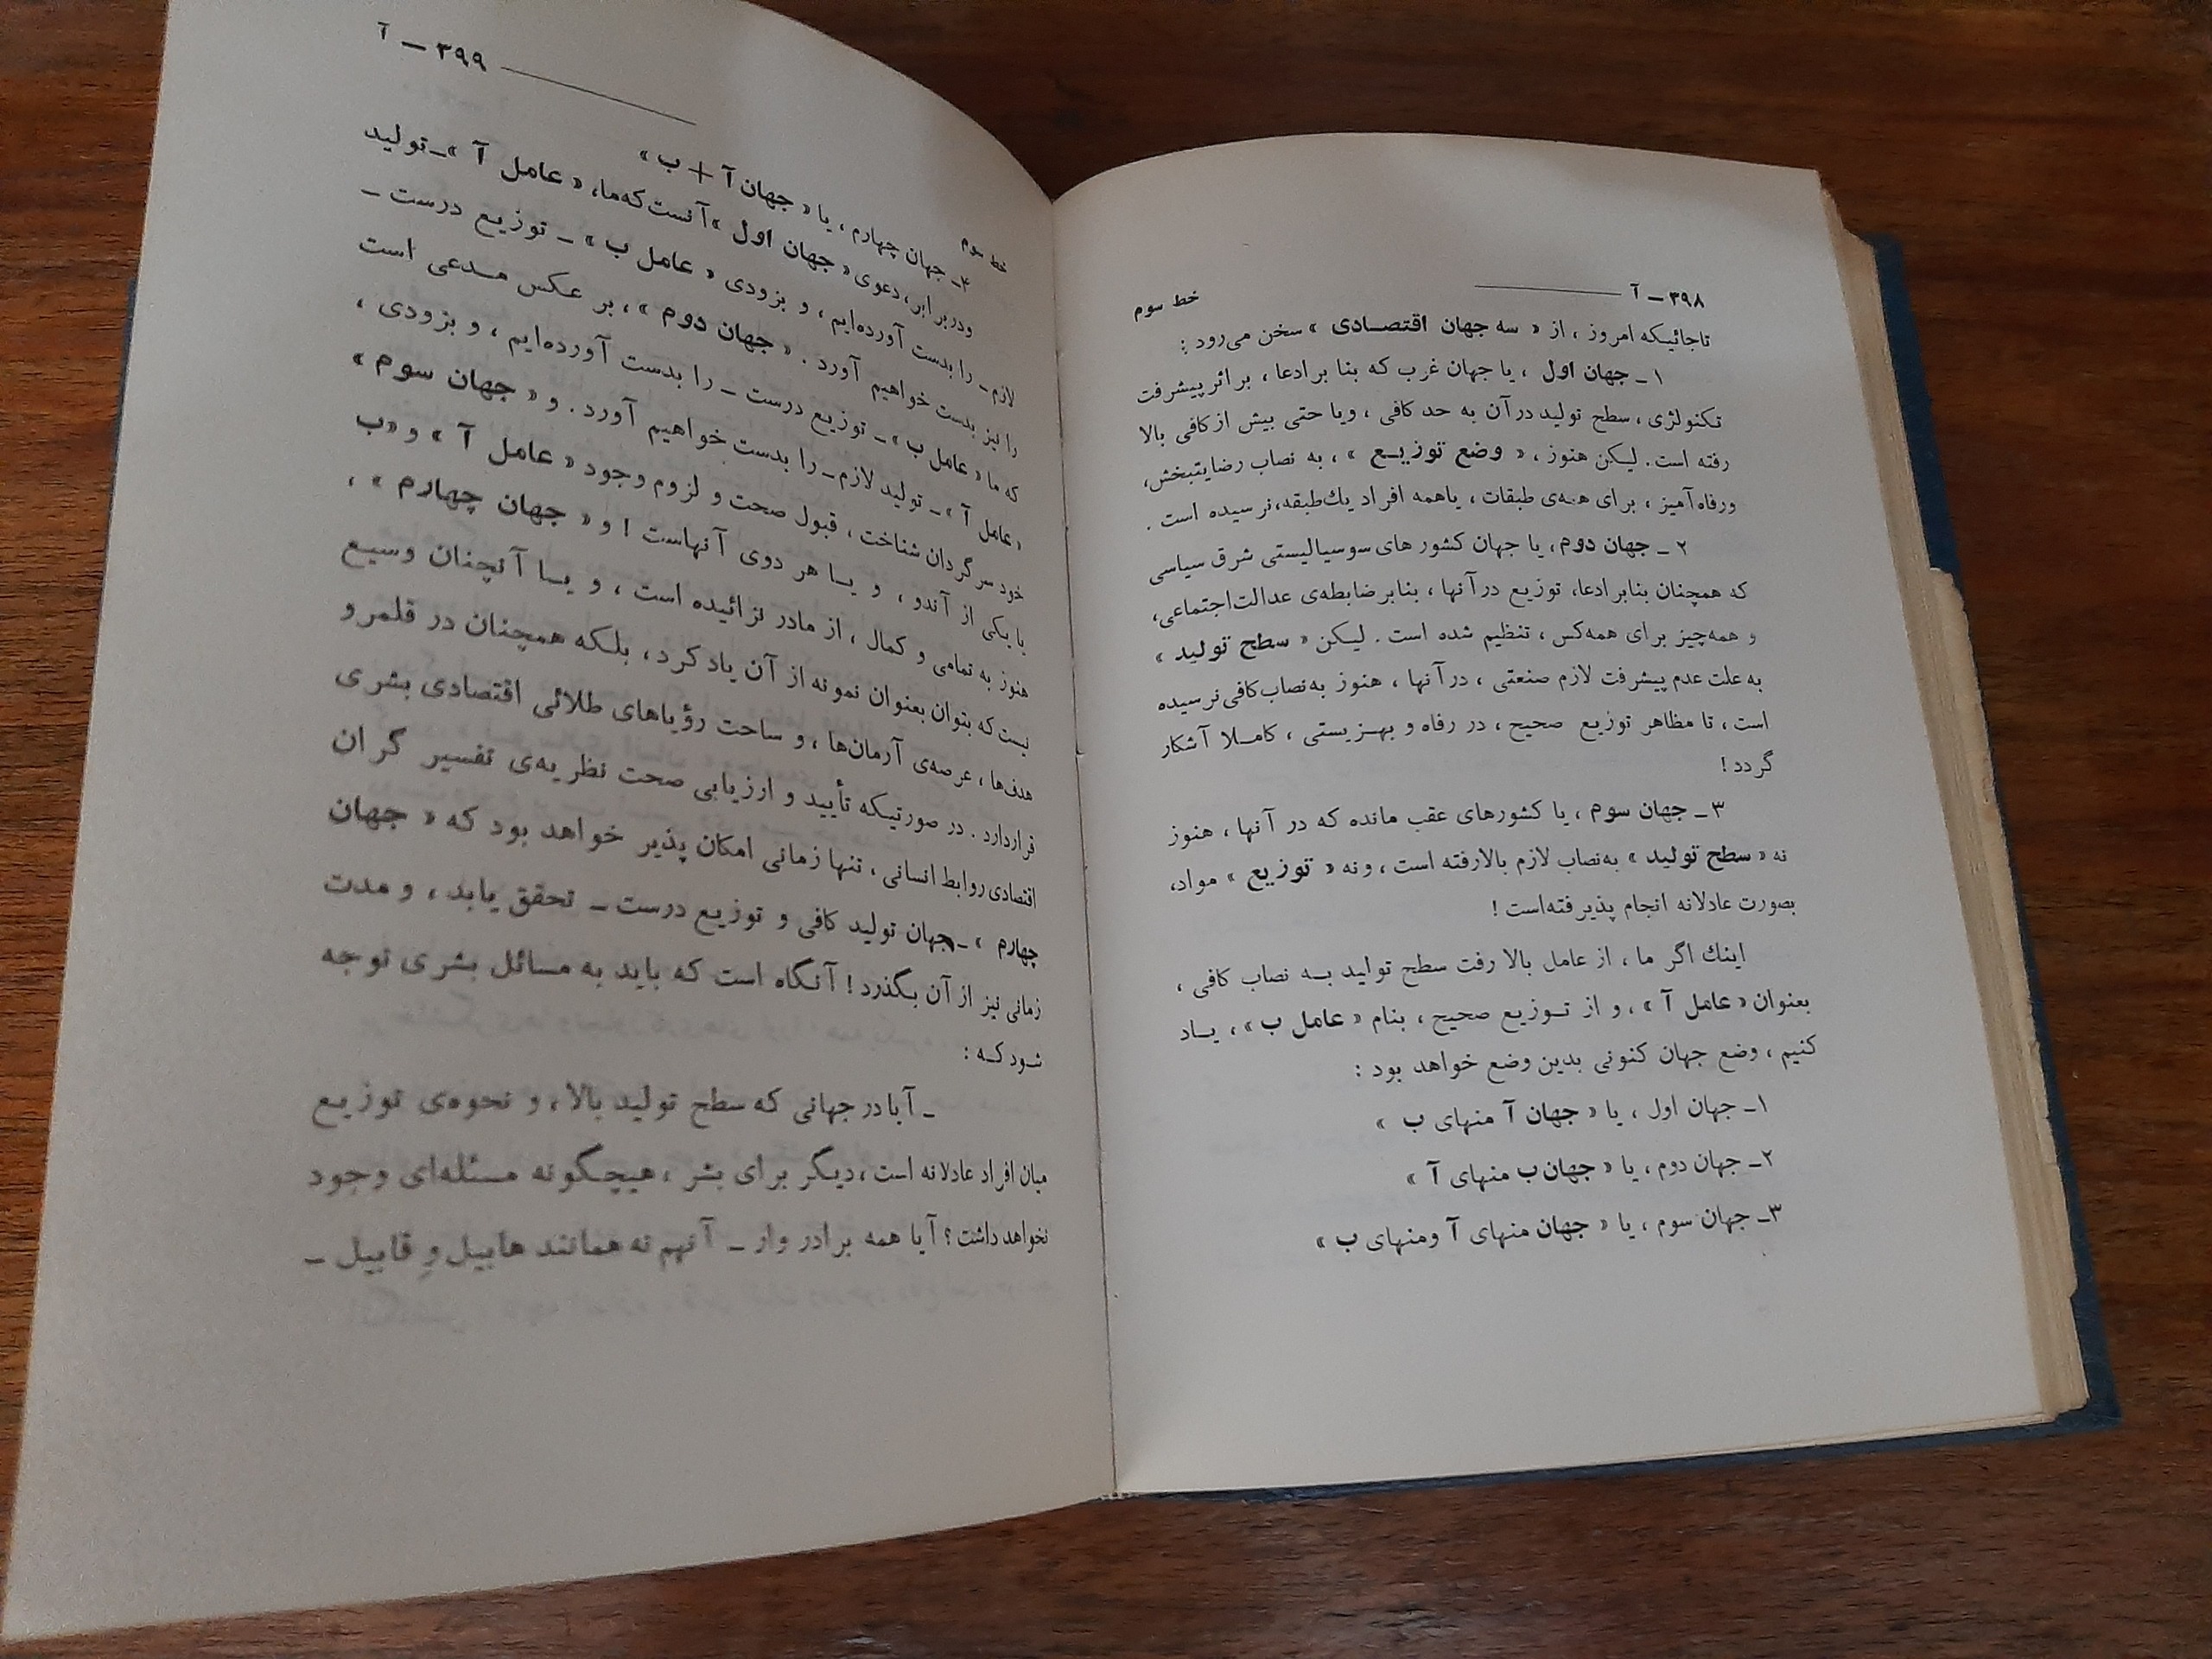 ۳۹۸ — آ خط سوم
تاجائیکه امروز ، از « سه جهان اقتصادی » سخن می‌رود :
۱ – جهان اول ، یا جهان غرب که بنا برادعا ، براثرپیشرفت
تکنولژی ، سطح تولید درآن به حد کافی ، ویا حتی بیش از کافی بالا
رفته است . لیکن هنوز ، « وضع توزیع » ، به نصاب رضایتبخش،
ورفاه‌آمیز ، برای همه‌ی طبقات ، یاهمه افراد یك‌طبقه، نرسیده است .
۲ – جهان دوم، یا جهان کشور های سوسیالیستی شرق سیاسی
که همچنان بنابرادعا، توزیع درآنها ، بنابرضابطه‌ی عدالت‌اجتماعی،
و همه‌چیز برای همه‌کس ، تنظیم شده است . لیکن « سطح تولید »
به علت عدم پیشرفت لازم صنعتی ، درآنها ، هنوز به‌نصاب‌کافی نرسیده
است ، تا مظاهر توزیع صحیح ، در رفاه و بهزیستی ، کاملا آشکار
گردد !
۳ – جهان سوم ، یا کشورهای عقب مانده که در آنها ، هنوز
نه « سطح تولید » به‌نصاب لازم بالارفته است ، ونه « توزیع » مواد،
بصورت عادلانه انجام پذیرفته‌است !
اینك اگر ما ، از عامل بالا رفت سطح تولید به نصاب کافی ،
بعنوان « عامل آ » ، و از توزیع صحیح ، بنام « عامل ب » ، یاد
کنیم ، وضع جهان کنونی بدین وضع خواهد بود :
۱– جهان اول ، یا « جهان آ منهای ب »
۲– جهان دوم ، یا « جهان ب منهای آ »
۳– جهان سوم ، یا « جهان منهای آ ومنهای ب »
خط سوم ۳۹۹ — آ
۴– جهان چهارم ، یا « جهان آ + ب »
ودربرابر، دعوی « جهان اول » آنست که‌ما، « عامل آ »–تولید
لازم– را بدست آورده‌ایم ، و بزودی « عامل ب » – توزیع درست –
را نیز بدست خواهیم آورد . « جهان دوم » ، بر عکس مدعی است
که ما « عامل ب » – توزیع درست – را بدست آورده‌ایم ، و بزودی ،
« عامل آ » – تولید لازم– را بدست خواهیم آورد . و « جهان سوم »
خود سرگردان شناخت ، قبول صحت و لزوم وجود « عامل آ » و «ب
با یکی از آندو ، و یا هر دوی آنهاست ! و « جهان چهارم » ،
هنوز به تمامی و کمال ، از مادر نزائیده است ، و یا آنچنان وسیع
نیست که بتوان بعنوان نمونه از آن یاد کرد ، بلکه همچنان در قلمرو
هدف‌ها ، عرصه‌ی آرمان‌ها ، و ساحت رؤیاهای طلائی اقتصادی بشری
قراردارد . در صورتیکه تأیید و ارزیابی صحت نظریه‌ی تفسیر گران
اقتصادی روابط انسانی ، تنها زمانی امکان پذیر خواهد بود که « جهان
چهارم » –جهان تولید کافی و توزیع درست – تحقق یابد ، و مدت
زمانی نیز از آن بگذرد ! آنگاه است که باید به مسائل بشری توجه
شود که :
– آیا در جهانی که سطح تولید بالا ، و نحوه‌ی توزیع
میان افراد عادلانه است ، دیگر برای بشر ، هیچگونه مسئله‌ای وجود
نخواهد داشت ؟ آیا همه برادر وار – آنهم نه همانند هابیل و قابیل –